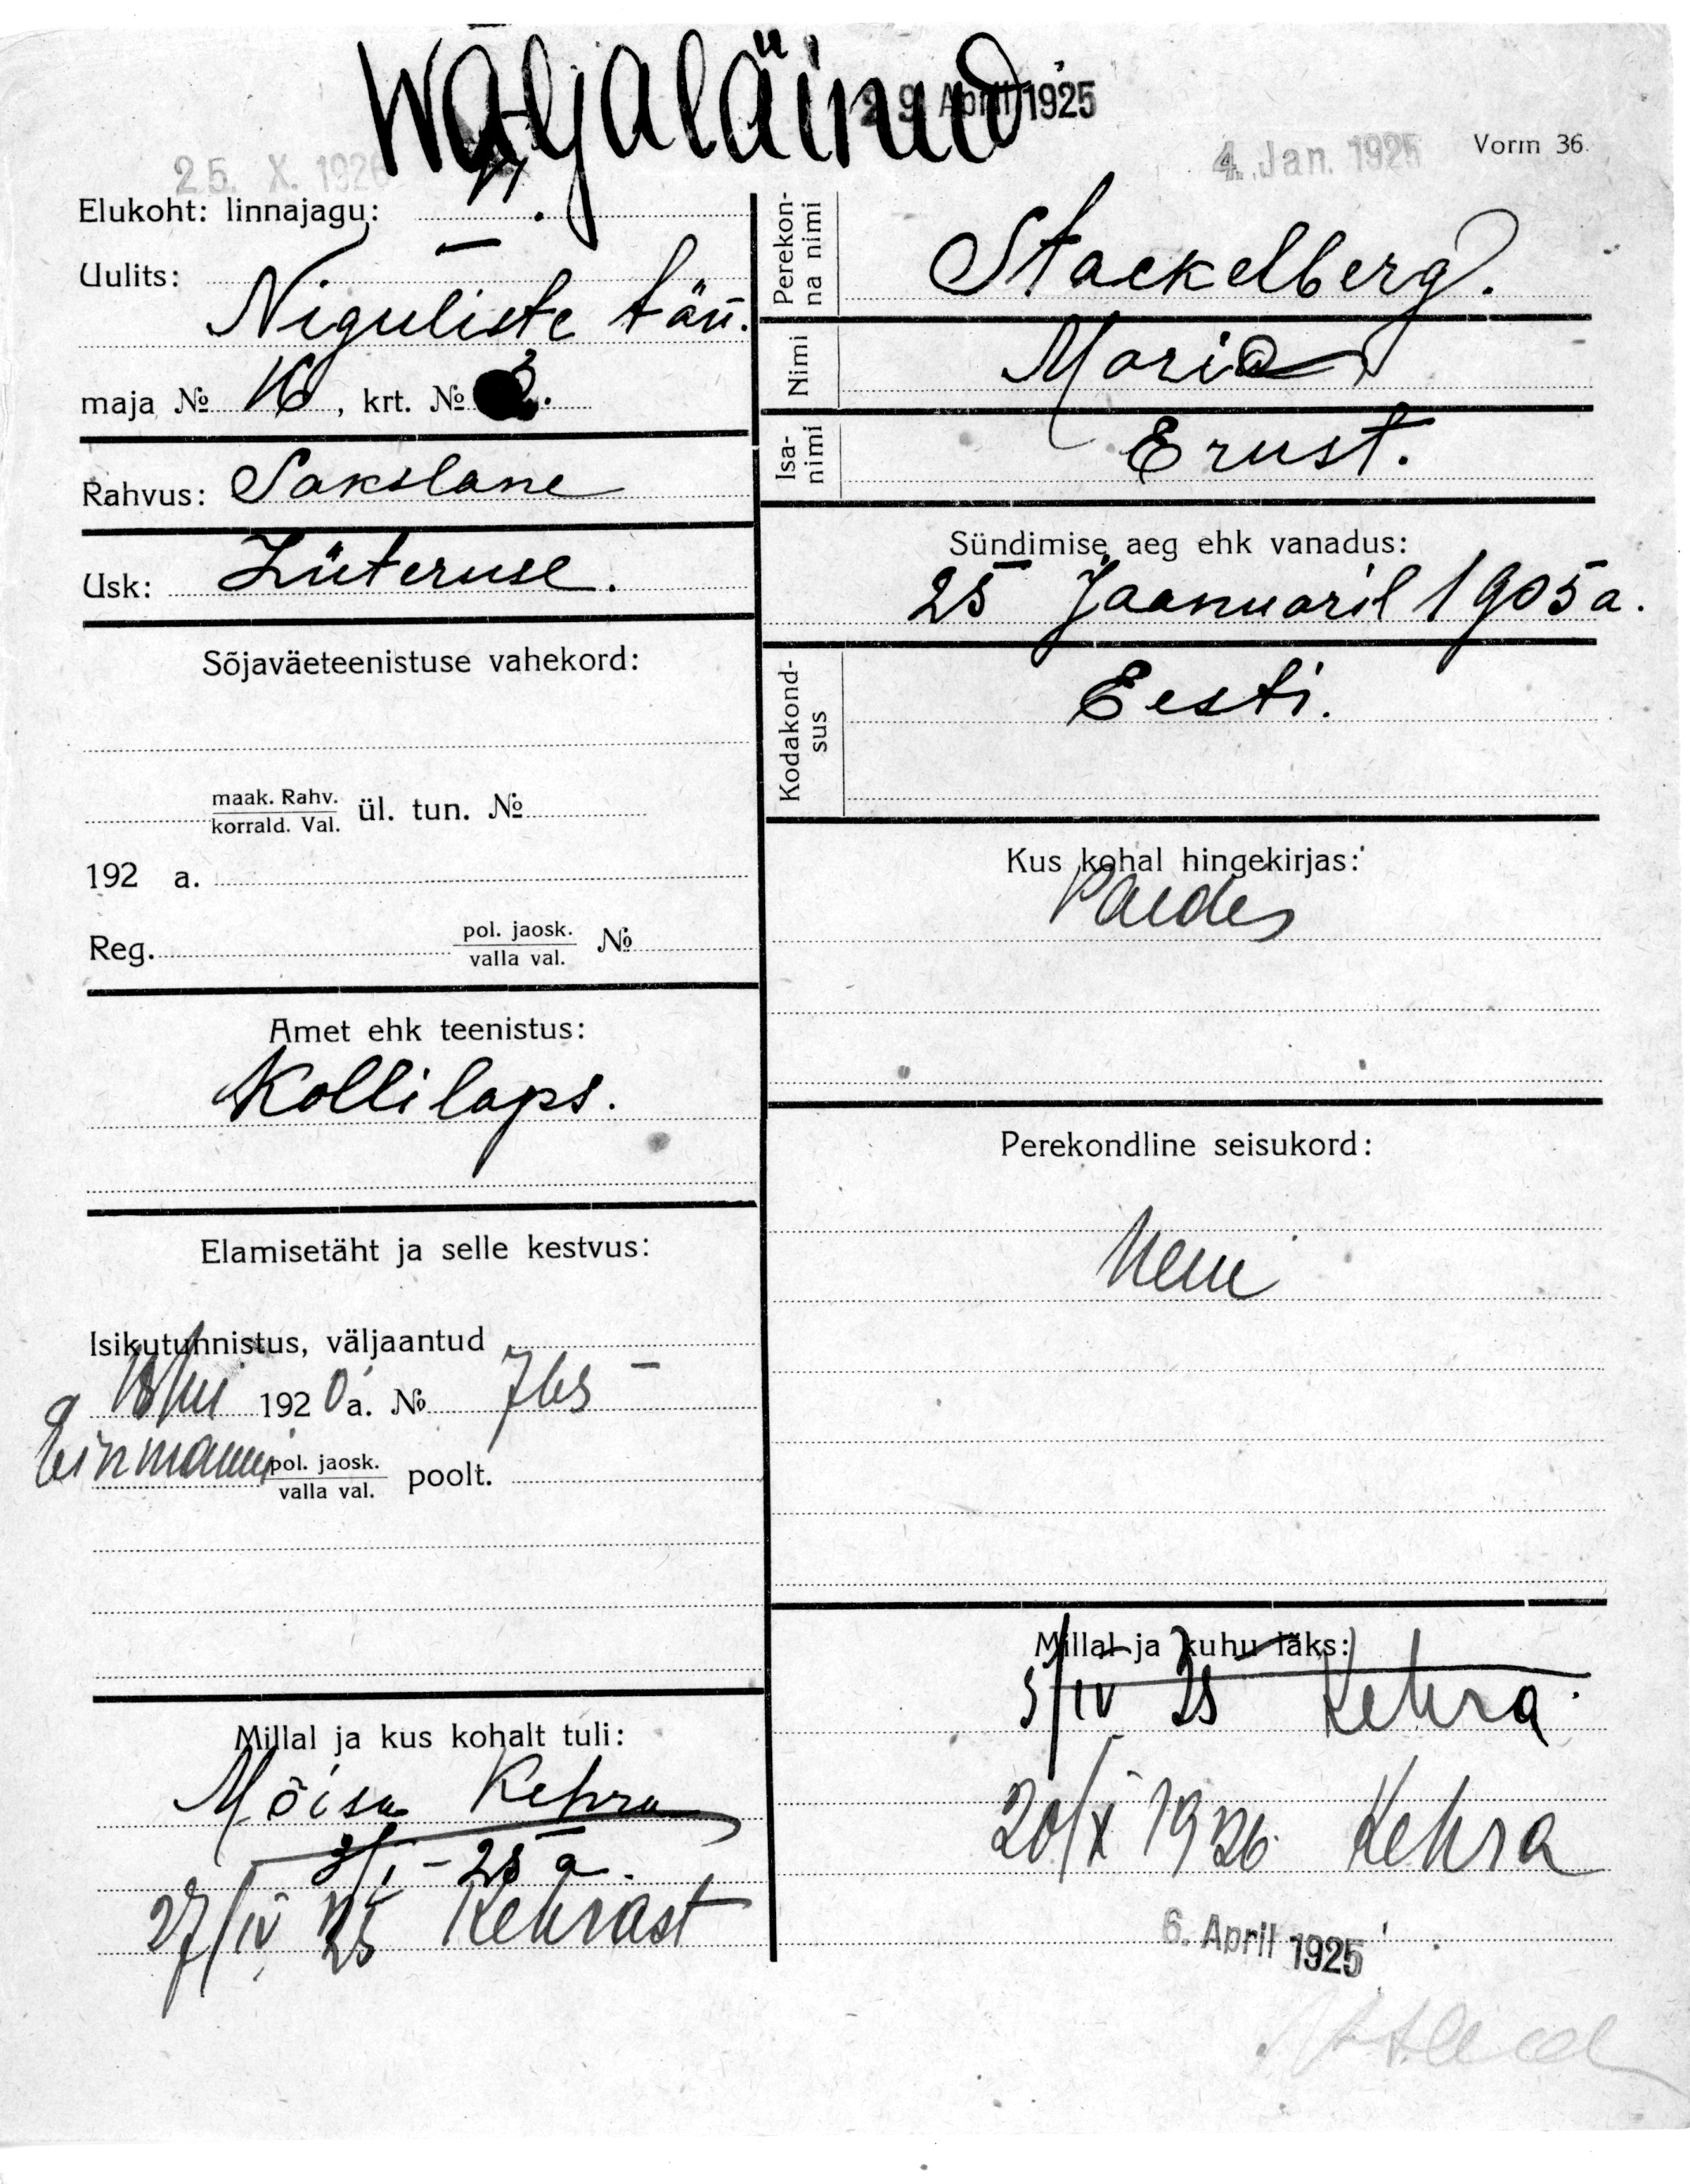 Wäljaläinud
29 April 1925
25. X. 1926
4. Jan. 1925
Vorm 36.
Elukoht: linnajagu:
Uulits:
Niguliste tän.
maja № 16, krt. № 3.
Rahvus: Sakslane
Usk: Lüteruse.
Sõjaväeteenistuse vahekord:
maak. Rahv.
korrald. Val. ül. tun. №
192 a.
Reg. pol. jaosk.
valla val. №
Amet ehk teenistus:
Kollilaps.
Elamisetäht ja selle kestvus:
Isikutunnistus, väljaantud
192 0 a. № 765
Einmanni pol. jaosk.
valla val. poolt.
Millal ja kus kohalt tuli:
Mõisa Kehra
3/I - 25 a.
27/IV 25 Kehrast
Perekonna nimi
Stackelberg.
Nimi
Maria
Isanimi
Ernst.
Sündimise aeg ehk vanadus:
25 Jaanuaril 1905 a.
Kodakondsus
Eesti.
Kus kohal hingekirjas:
Paides
Perekondline seisukord:
Neiu
Millal ja kuhu läks:
5/IV 25 Kehra.
20/X 1926. Kehra
6. April 1925